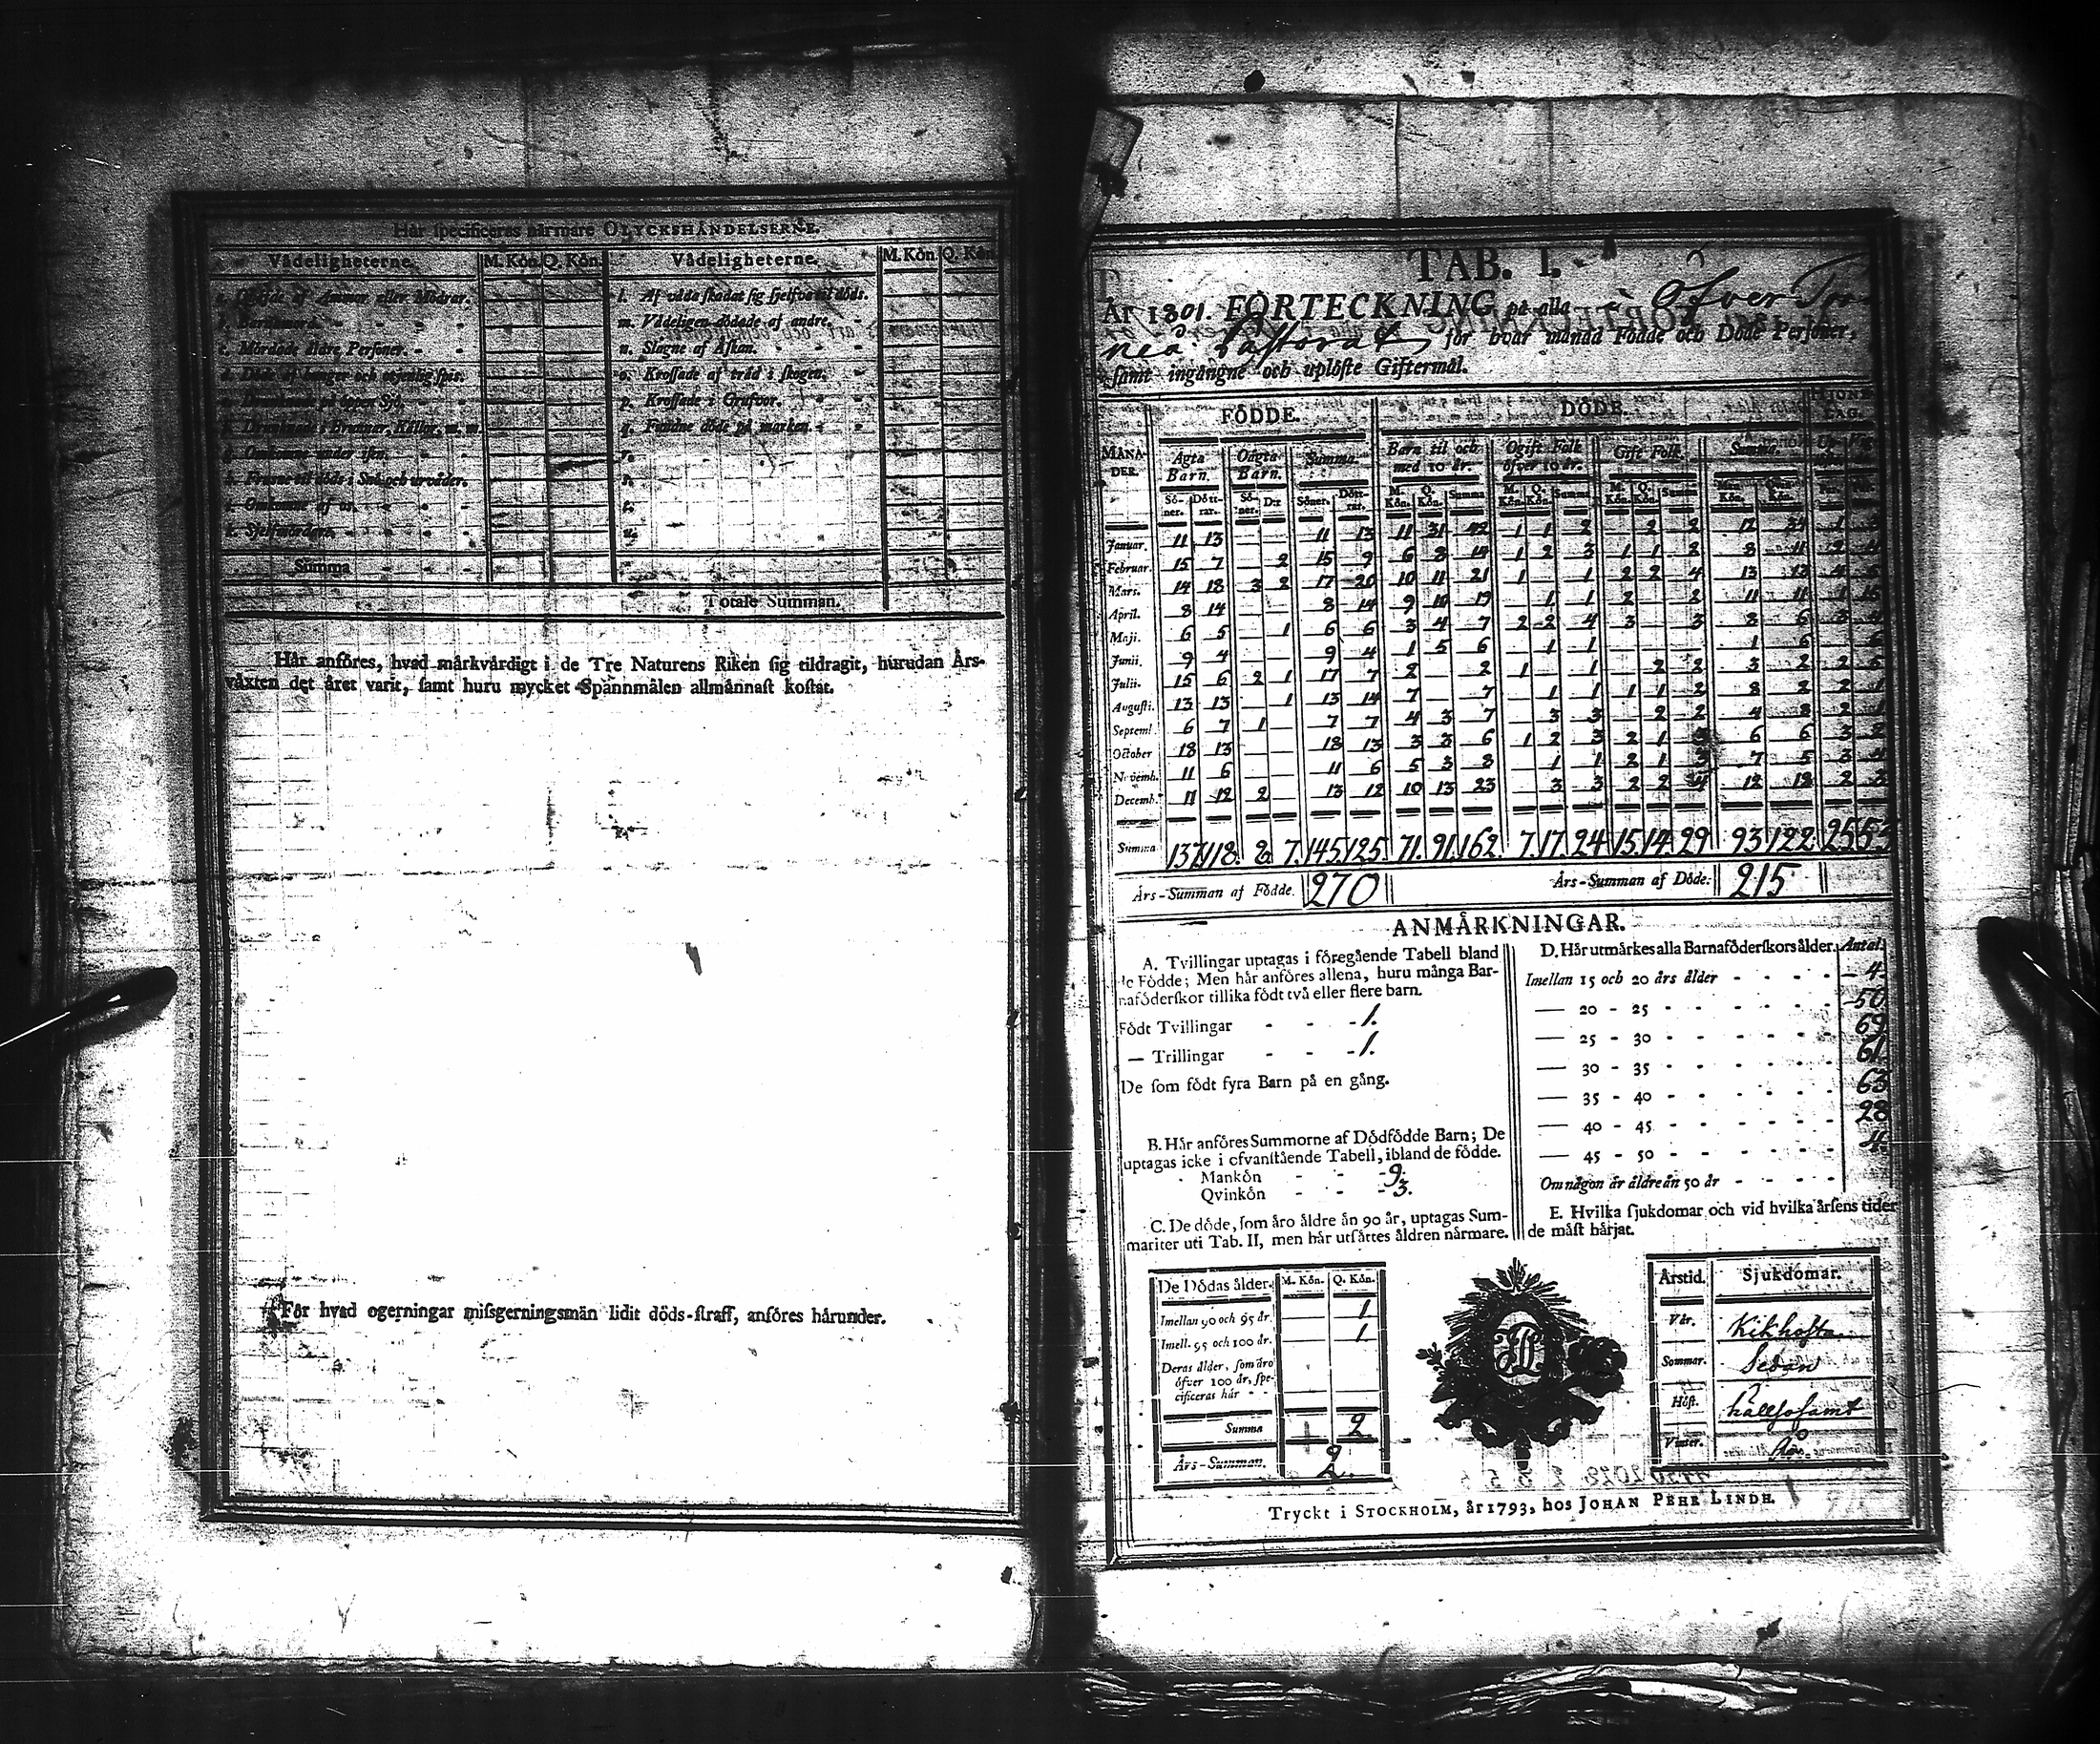 Hår specificeras närmare OLYCKSHÅNDELSERNE.
Vådeligheterne. M. Kön. Q. Kön. Vådeligheterne. M. Kön. Q. Kön.
af Ammor eller Mödrar. l. Af våda skadat sig sjelfva til döds.
b. Barnamord. m. Vådeligen dödade af andre.
c. Mördade äldre Personer. n. Slagne af Åskan.
d. Döde af hunger och spis. o. Krossade af träd i skogen.
e. Drunknade på öppen Sjö. p. Krossade i Grufvor.
f. Drunknade i Brunnar, Källor, m. m. q. Fundne döde på marken.
g. Omkomne under isen. r.
h. Frusne til döds i Snö och urväder. s.
i. Omkomne af os. t.
k. Sjelfmördare. u.
Summa
Totale Summan.
Hår anföres, hvad märkvärdigt i de Tre Naturens Riken sig tildragit, hurudan Års-
växten det året varit, samt huru mycket Spannmålen allmännast kostat.
För hvad ogerningar missgerningsmän lidit döds-straff, anföres hårunder.
TAB. I.
År 1801. FÖRTECKNING på alla i Öfver Tor
neå Pastorat för hvar månad Födde och Döde Personer,
samt ingångne och uplöste Giftermål.
FÖDDE. DÖDE.
MÅNA-DER. Ägta Barn. Oägta Barn. Summa. Barn til och med 10 år. Ogift Folk öfver 10 år. Gift Folk. Summa.
Sö-ner. Dött-rar. Sö-ner. D:r Söner. Dött-rar. M. Kön. Q. Kön. Summa M. Kön. Q. Kön. Summa M. Kön. Q. Kön. Summa Man-Kön. Qvin-Kön.
Januar. 11 13 — — 11 13 11 31 42 1 1 2 — 2 2 12 34 1
Februar. 15 7 — 2 15 9 6 8 14 1 2 3 1 1 2 8 11 2 4
Mars. 14 18 3 2 17 20 10 11 21 1 — 1 2 2 4 13 13 4
April. 8 14 — — 8 14 9 10 19 — 1 1 2 — 2 11 11 1 16
Maji. 6 5 — 1 6 6 3 4 7 2 2 4 3 — 3 8 6 3 4
Junii. 9 4 — — 9 4 1 5 6 — 1 1 — — — 1 6 — 6
Julii. 15 6 2 1 17 7 2 — 2 1 — 1 — 2 2 3 2 2 5
Augusti. 13 13 — 1 13 14 7 — 7 — 1 1 1 1 2 8 2 2 1
Septemb. 6 7 1 — 7 7 4 3 7 — 3 3 — 2 2 4 8 2 1
October 18 13 — — 18 13 3 3 6 1 2 3 2 1 3 6 6 3 2
Novemb. 11 6 — — 11 6 5 3 8 — 1 1 2 1 3 7 5 3 4
Decemb. 11 12 2 — 13 12 10 13 23 — 3 3 2 2 4 12 18 2 3
Summa 137. 118. 8. 7. 145. 125. 71. 91. 162. 7. 17. 24 15. 14. 29 93 122. 25 53
Års-Summan af Födde. 270 Års-Summan af Döde. 215
ANMÄRKNINGAR.
A. Tvillingar uptagas i föregående Tabell bland
de Födde; Men hår anföres allena, huru många Bar-
naföderskor tillika födt två eller flere barn.
Födt Tvillingar - - - 1.
— Trillingar - - - 1.
De som födt fyra Barn på en gång.
B. Hår anföres Summorne af Dödfödde Barn; De
uptagas icke i ofvanstående Tabell, ibland de födde.
Mankön - - - 9.
Qvinkön - - - 3.
C. De döde, som äro äldre än 90 år, uptagas Sum-
mariter uti Tab. II, men hår utsättes åldren närmare.
D. Hår utmärkes alla Barnaföderskors ålder. Antal.
Imellan 15 och 20 års ålder - - - - 4
— 20 - 25 - - - - 50
— 25 - 30 - - - - 69
— 30 - 35 - - - - 61
— 35 - 40 - - - - 63
— 40 - 45 - - - - 28
— 45 - 50 - - - - 4.
Om någon är äldre än 50 år - - - -
E. Hvilka sjukdomar och vid hvilka årsens tider
de mäst härjat.
De Dödas ålder. M. Kön. Q. Kön.
Imellan 90 och 95 år. 1
Imell. 95 och 100 år. 1
Deras ålder, som äro
öfver 100 år, spe-
cificeras hår - -
Summa 2
Års-Summan. 2
Årstid. Sjukdomar.
Vår. Kikhosta
Sommar. Sedan
Höst. hälsosamt
Vinter. År.
Tryckt i STOCKHOLM, år 1793, hos JOHAN PEHR LINDH.